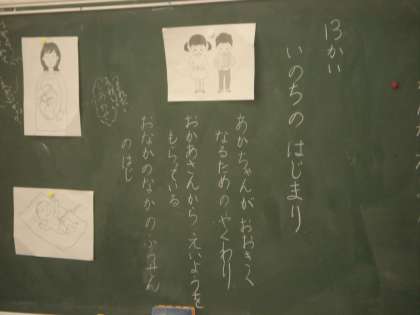 13かい
いのちの はじまり
あかちゃんが おおきく
なるための やくわり
おかあさんから えいようを
もらっている
おなかのなかの
のはじ